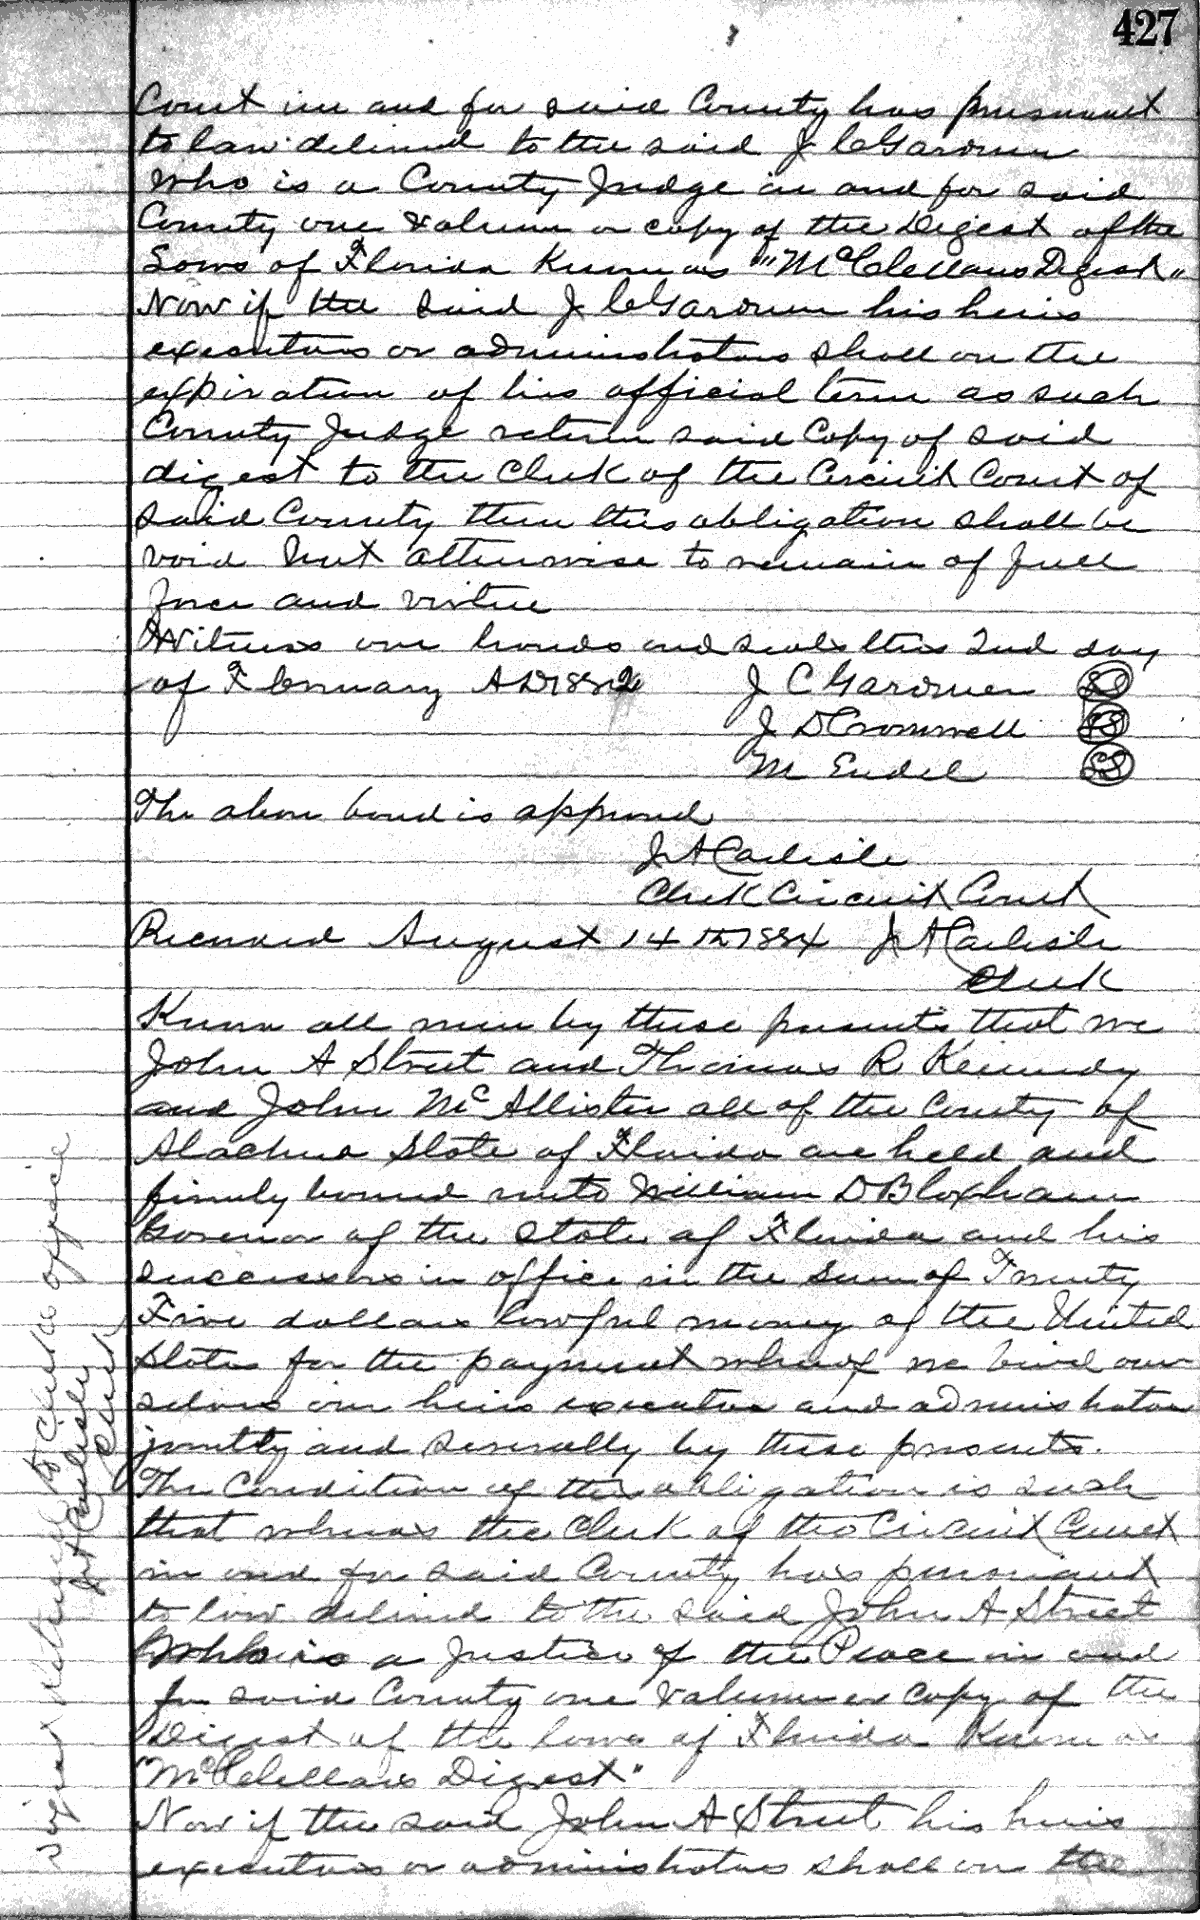 427
Court in and for said County has pursuant
to law delivered to the said J C Gardner
Who is a County Judge in and for said
County one volume or copy of the Digest of the
Laws of Florida Known as "McClellans Digest"
Now if the said J C Gardner his heirs
executors or administrators shall on the
expiration of his official term as such
County Judge return said Copy of said
digest to the Clerk of the Circuit Court of
said County then this obligation shall be
void but otherwise to remain of full
force and virtue
Witness our hands and seals this 2nd day
of February AD 1882 J C Gardner LS
J D Cromwell LS
M Endel LS
The above bond is approved
J A Carlisle
Clerk Circuit Court
Recorded August 14th 1884 J A Carlisle
Clerk
Know all men by these presents that we
John A Street and Thomas R Kennedy
and John McAllister all of the County of
Alachua State of Florida are held and
firmly bound unto William D Bloxham
Governor of the State of Florida and his
successors in office in the sum of Twenty
Five dollars lawful money of the United
States for the payment whereof we bind our
selves our heirs executors and administrators
jointly and severally by these presents.
The Condition of this obligation is such
that whereas the Clerk of the Circuit Court
in and for said County has pursuant
to law delivered to the said John A Street
Who is a Justice of the Peace in and
for said County one volume or copy of the
Digest of the laws of Florida Known as
"McClellans Digest"
Now if the said John A Street his heirs
executors or administrators shall on the
Digest Returned to Clerks office
J A Carlisle
Clerk